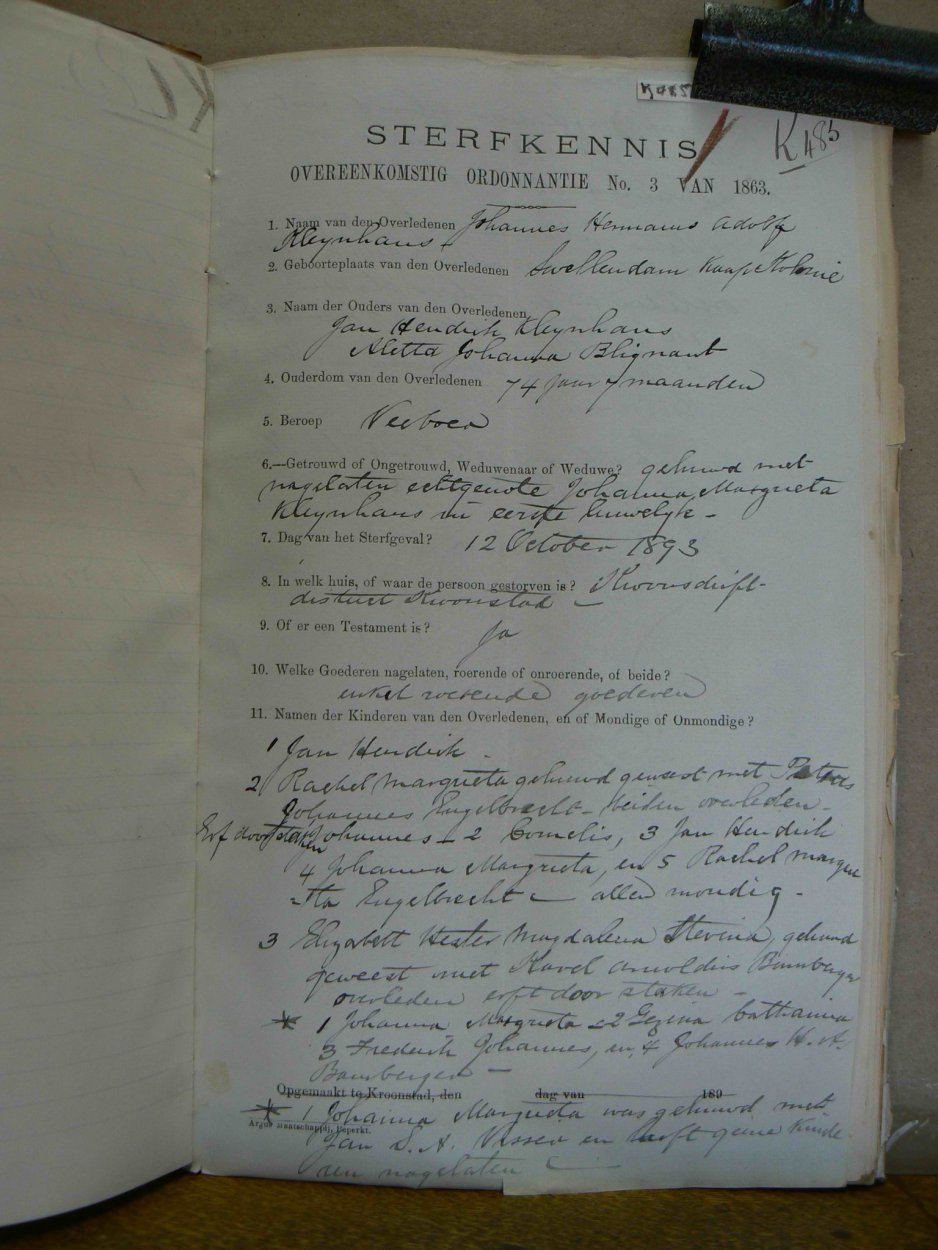 K485
K 485
STERFKENNIS
OVEREENKOMSTIG ORDONNANTIE No. 3 VAN 1863.
1. Naam van den Overledenen Johannes Hermanus Adolf
Kleynhans
2. Geboorteplaats van den Overledenen Swellendam Kaap Kolonie
3. Naam der Ouders van den Overledenen
Jan Hendrik Kleynhans
Aletta Johanna Blignaut
4. Ouderdom van den Overledenen 74 jaar 7 maanden
5. Beroep Veeboer
6.—Getrouwd of Ongetrouwd, Weduwenaar of Weduwe? gehuwd met
nagelaten echtgenote Johanna Margrieta
Kleynhans in eerste huwelyk -
7. Dag van het Sterfgeval? 12 October 1893
8. In welk huis, of waar de persoon gestorven is?
district Kroonstad -
9. Of er een Testament is? Ja
10. Welke Goederen nagelaten, roerende of onroerende, of beide?
enkel roerende goederen
11. Namen der Kinderen van den Overledenen, en of Mondige of Onmondige?
1 Jan Hendrik -
2 Rachel Margrieta gehuwd geweest met Petrus
Johannes Engelbrecht - beiden overleden -
Erf door staken Johannes - 2 Cornelis, 3 Jan Hendrik
4 Johanna Margrieta, en 5 Rachel Margrie
-ta Engelbrecht - allen mondig -
3 Elizabett Hester Magdalena Stevina, gehuwd
geweest met Karel Arnoldus Bamberger
overleden erft door staken -
* 1 Johanna Margrieta 2 Gezina Catharina
3 Frederik Johannes, en 4 Johannes H. A.
Bamberger -
Opgemaakt te Kroonstad, den dag van 189
* 1 Johanna Margrieta was gehuwd met
Argus Maatschappij, Beperkt.
Jan S. A. Visser en heeft geene kinde-
ren nagelaten